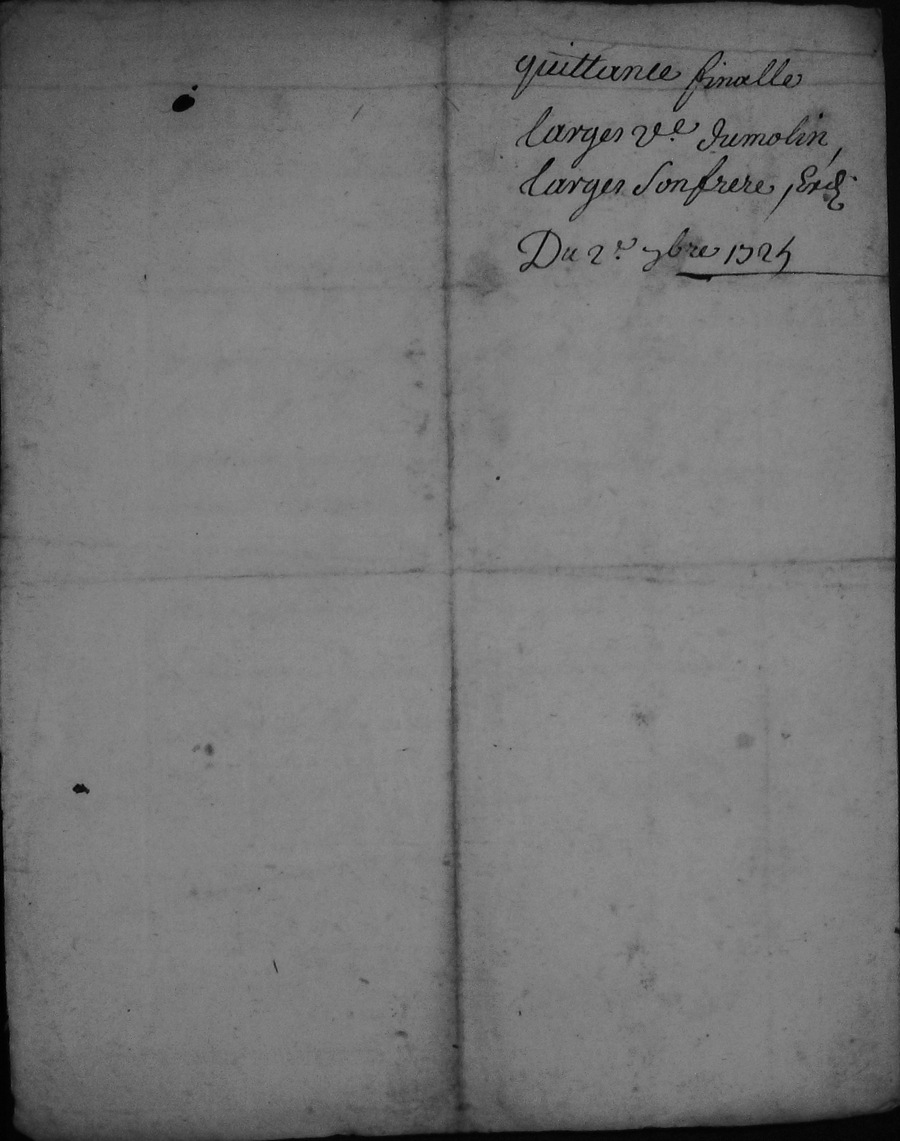 quittance finalle
larges v.e dumolin
larges son frere
Du 2.e 7bre 1725